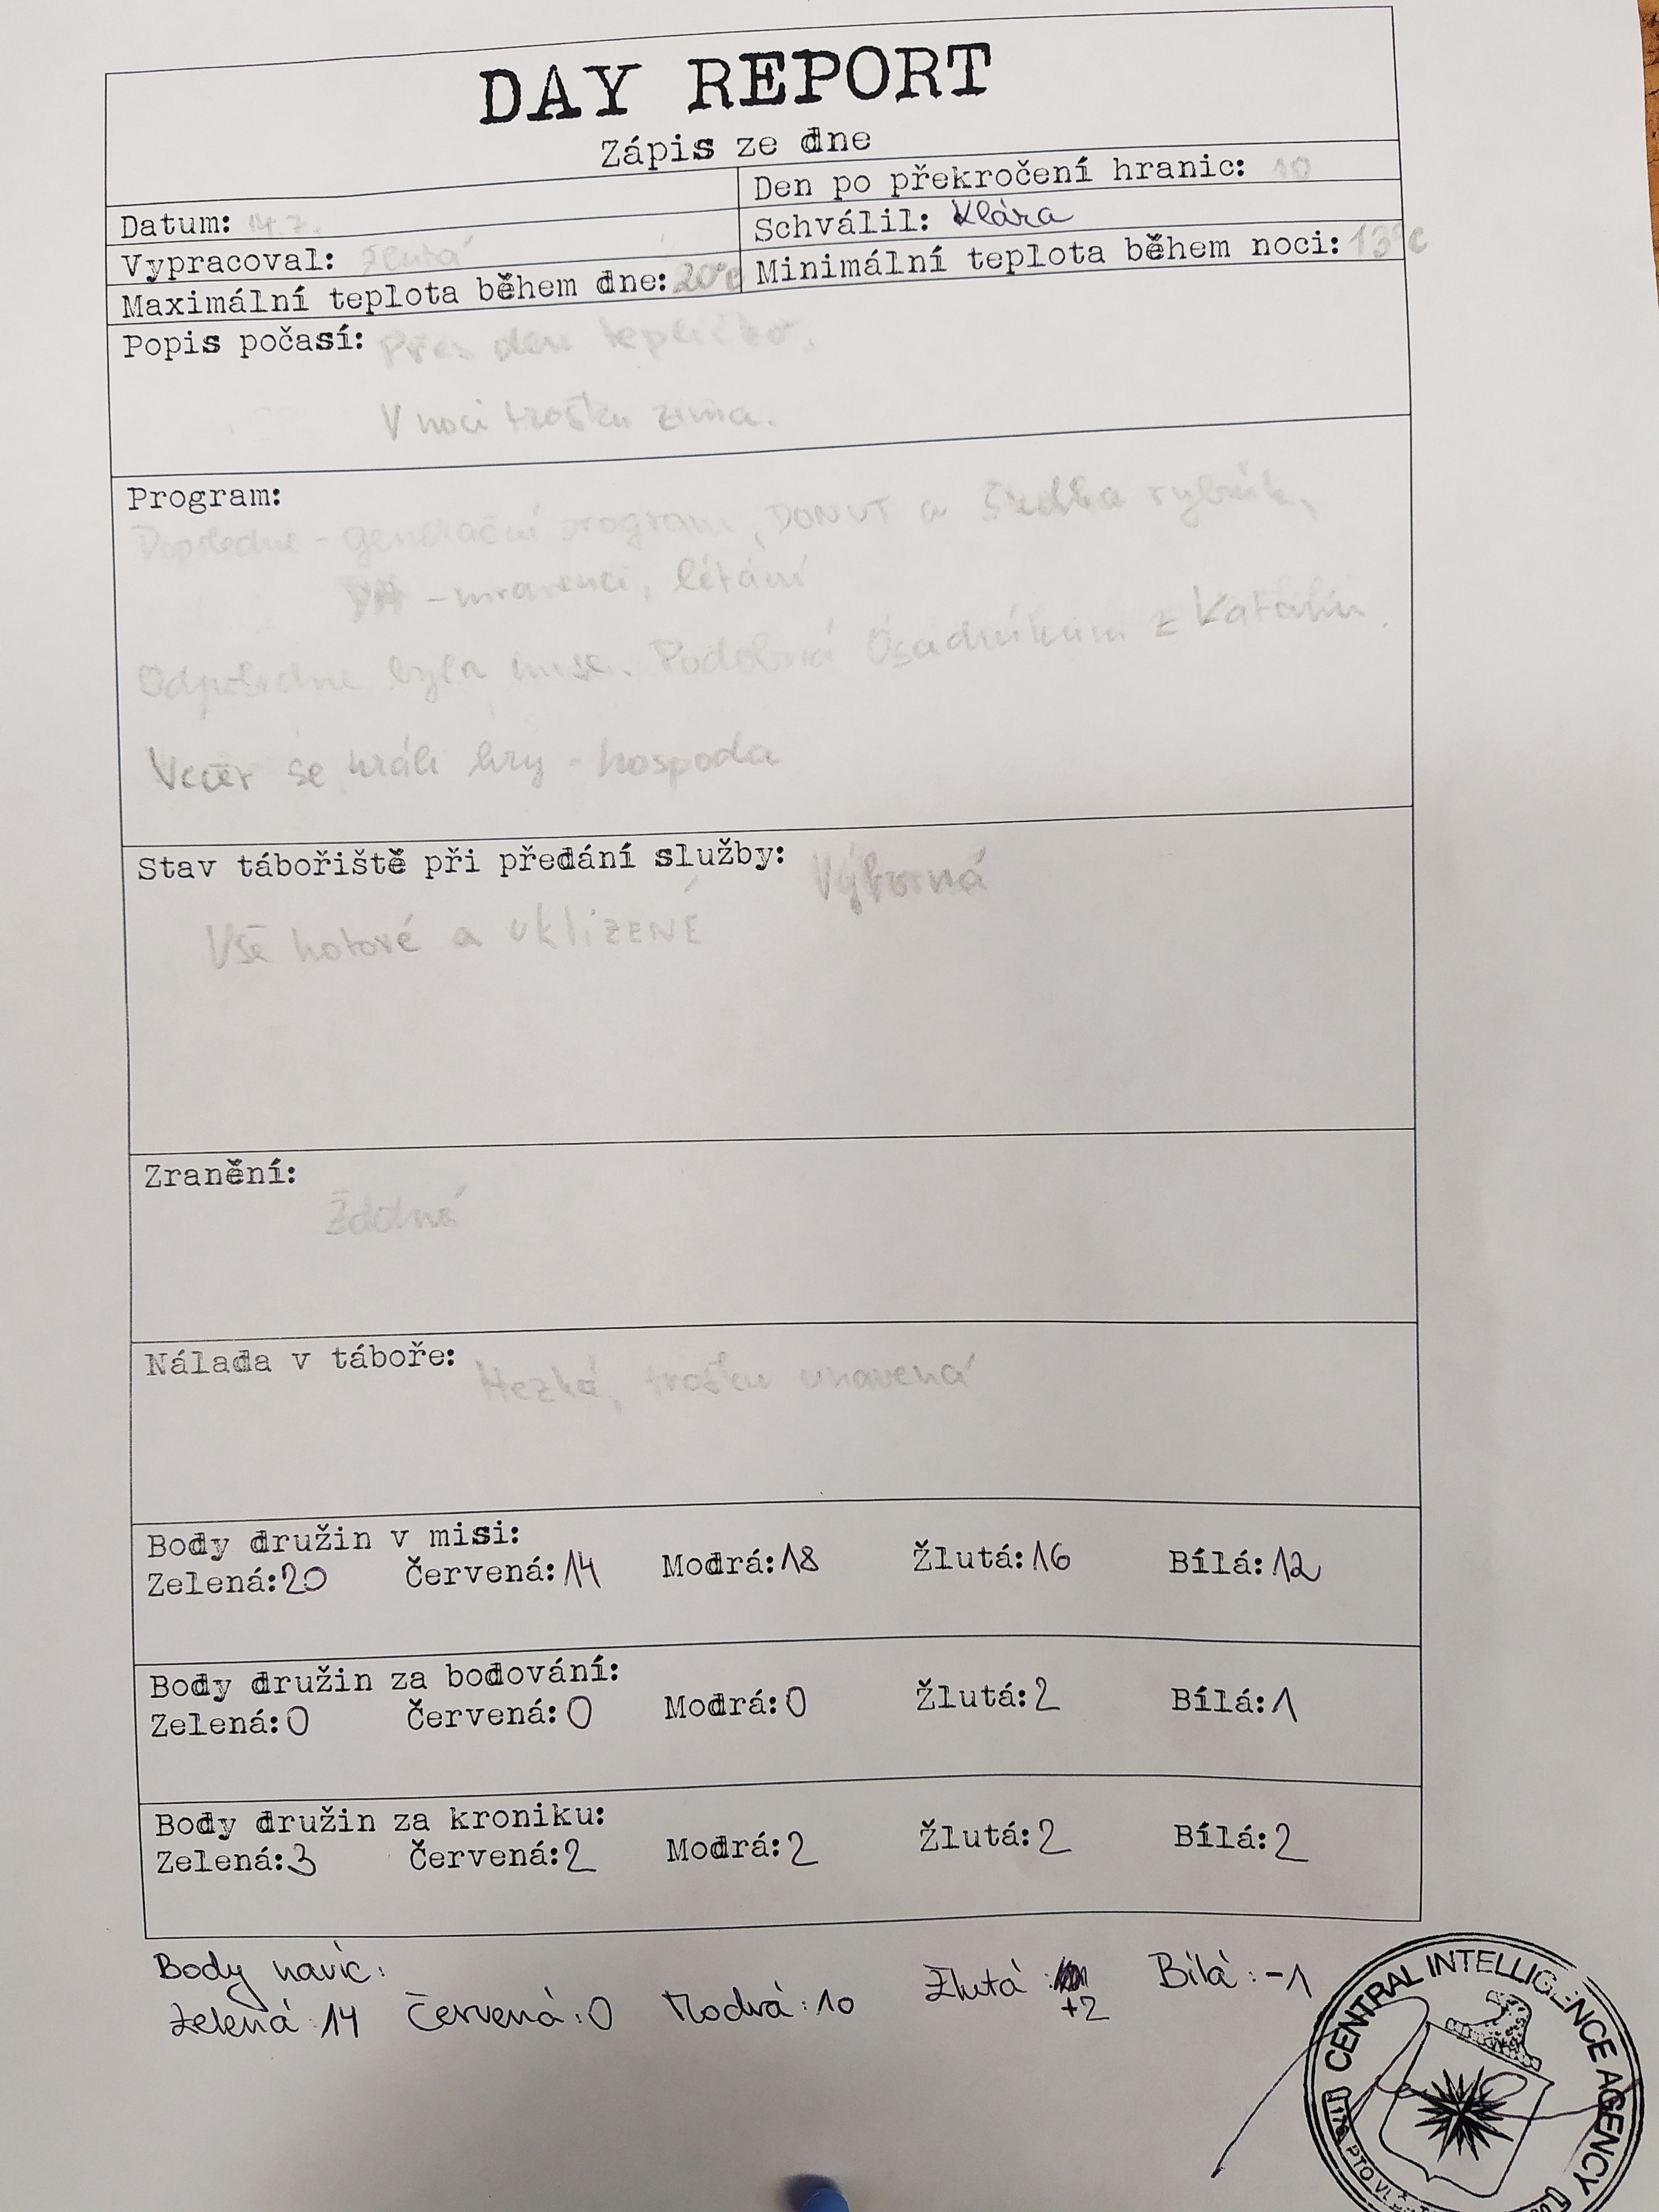 DAY REPORT
Zápis ze dne
Den po překročení hranic: 10
Datum: 14.7.
Schválil: Klára
Vypracoval: Žlutá
Maximální teplota během dne: 20°C
Minimální teplota během noci: 13°C
Popis počasí: Přes den tepličko,
V noci trošku zima.
Program:
Dopoledne - generační program, DONUT a rybník,
- mravenci, létání
Odpoledne byla mise. Podobná Osadníkům z Katanu.
Večer se hráli hry - hospoda
Stav tábořiště při předání služby: Výborná
Vše hotové a UKLIZENÉ
Zranění:
Nálada v táboře: Hezká, trošku unavená
Body družin v misi:
Zelená: 20 Červená: 14 Modrá: 18 Žlutá: 16 Bílá: 12
Body družin za bodování:
Zelená: 0 Červená: 0 Modrá: 0 Žlutá: 2 Bílá: 1
Body družin za kroniku:
Zelená: 3 Červená: 2 Modrá: 2 Žlutá: 2 Bílá: 2
Body navíc:
Zelená: 14 Červená: 0 Modrá: 10 Žlutá: +2 Bílá: -1
CENTRAL INTELLIGENCE AGENCY
PTO